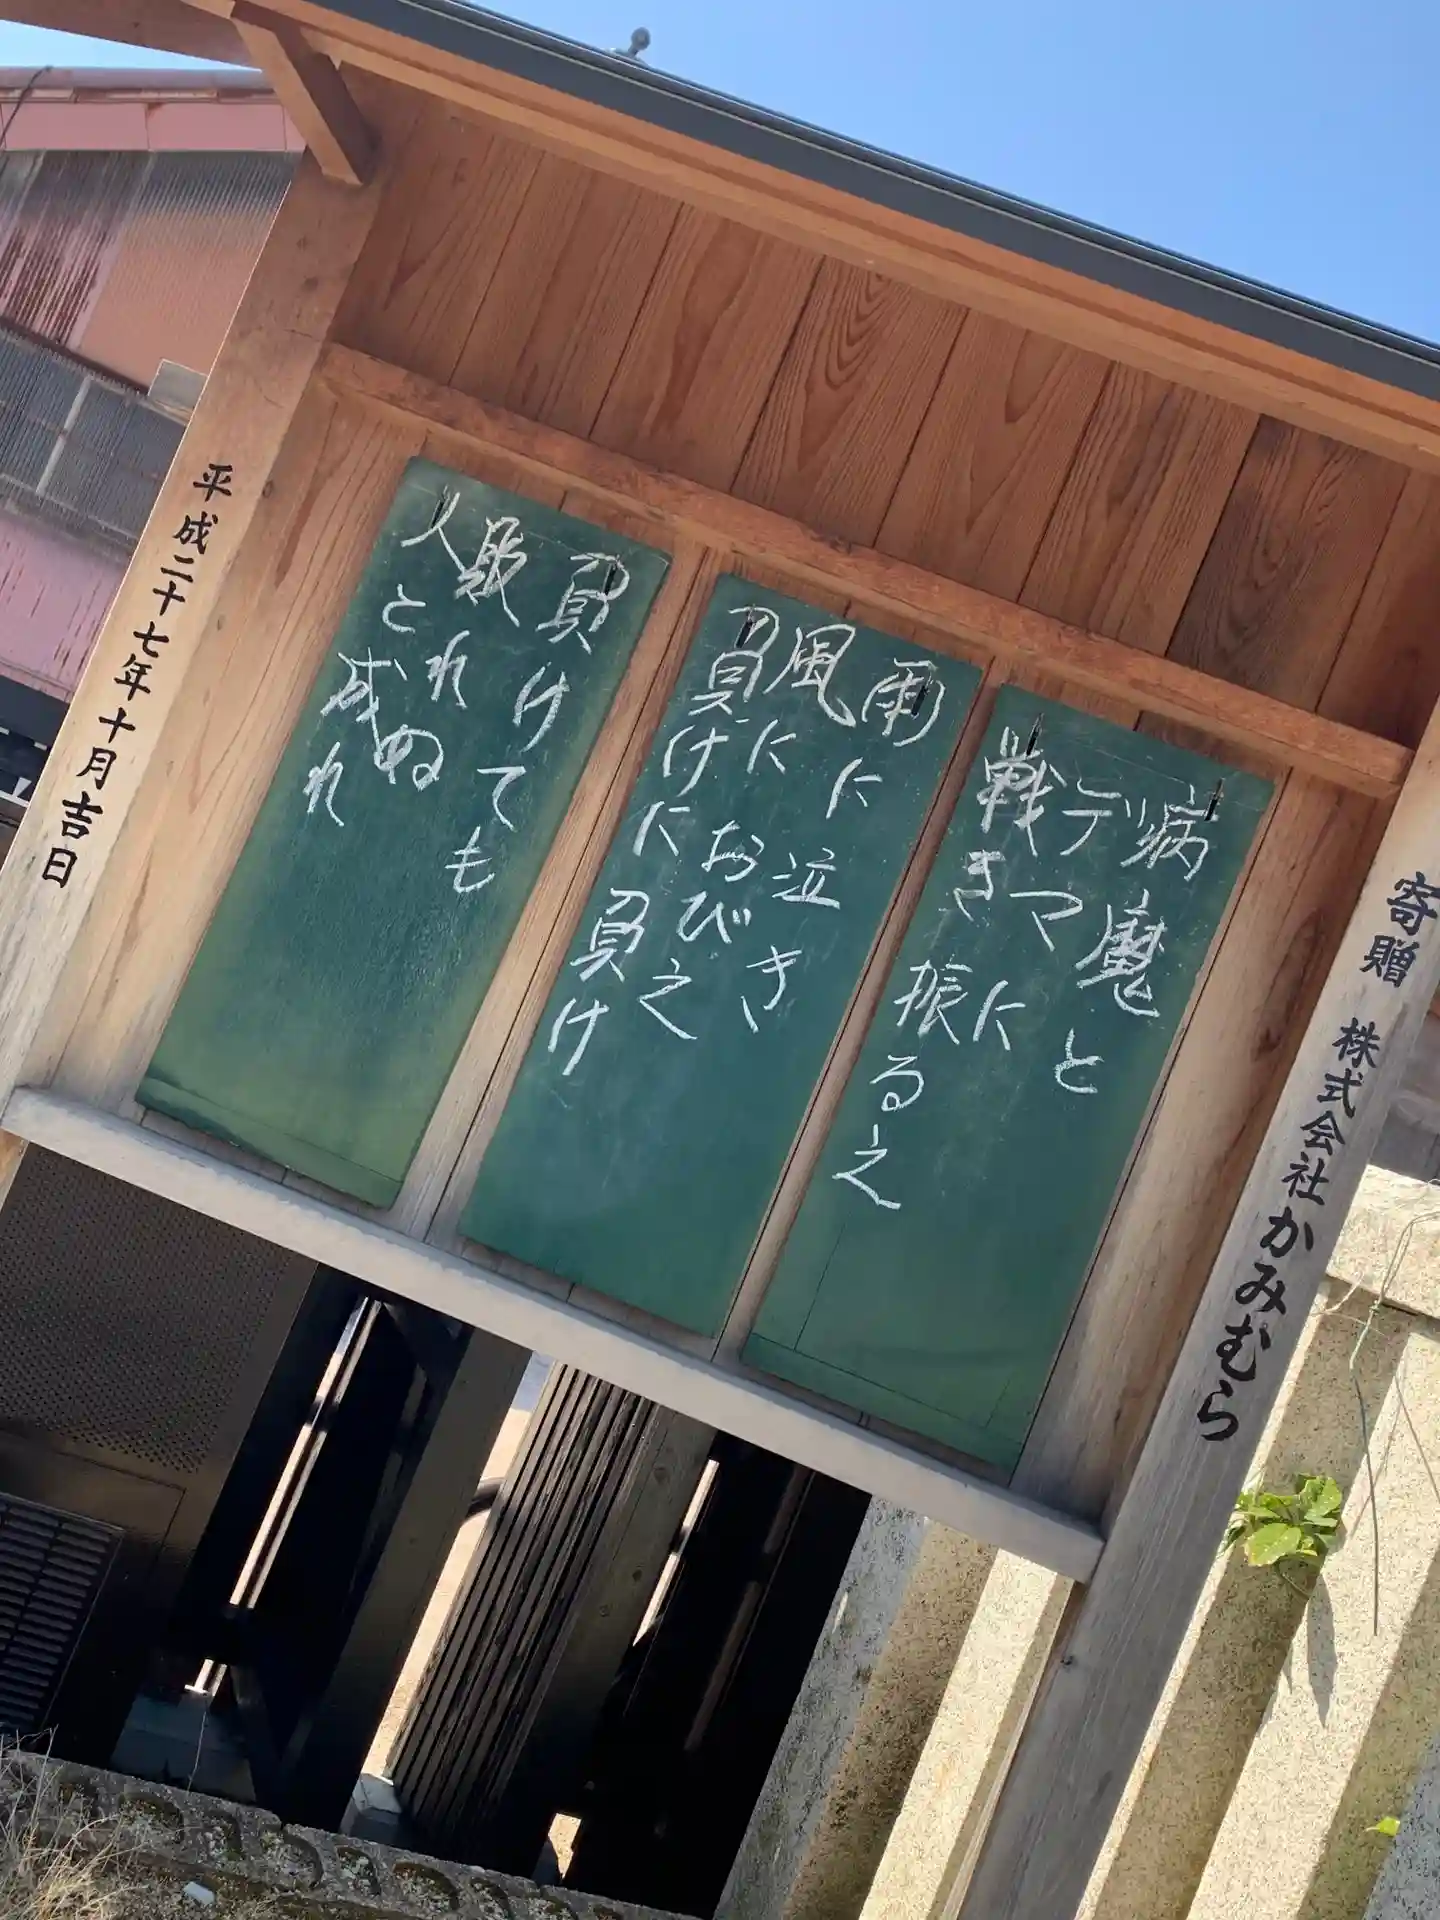 寄贈 株式会社かみむら
病魔と
デマに
戦き振る之
雨に泣き
風におびえ
負けに負け
負けても
敗れぬ
人と成れ
平成二十七年十月吉日